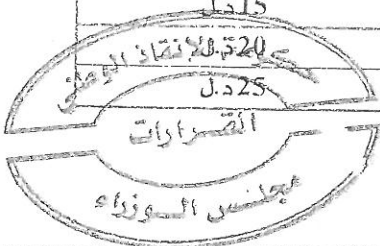 15د.ل
20د.ل
حكومة الإنقاذ الوطني
25د.ل
القرارات
مجلس الوزراء